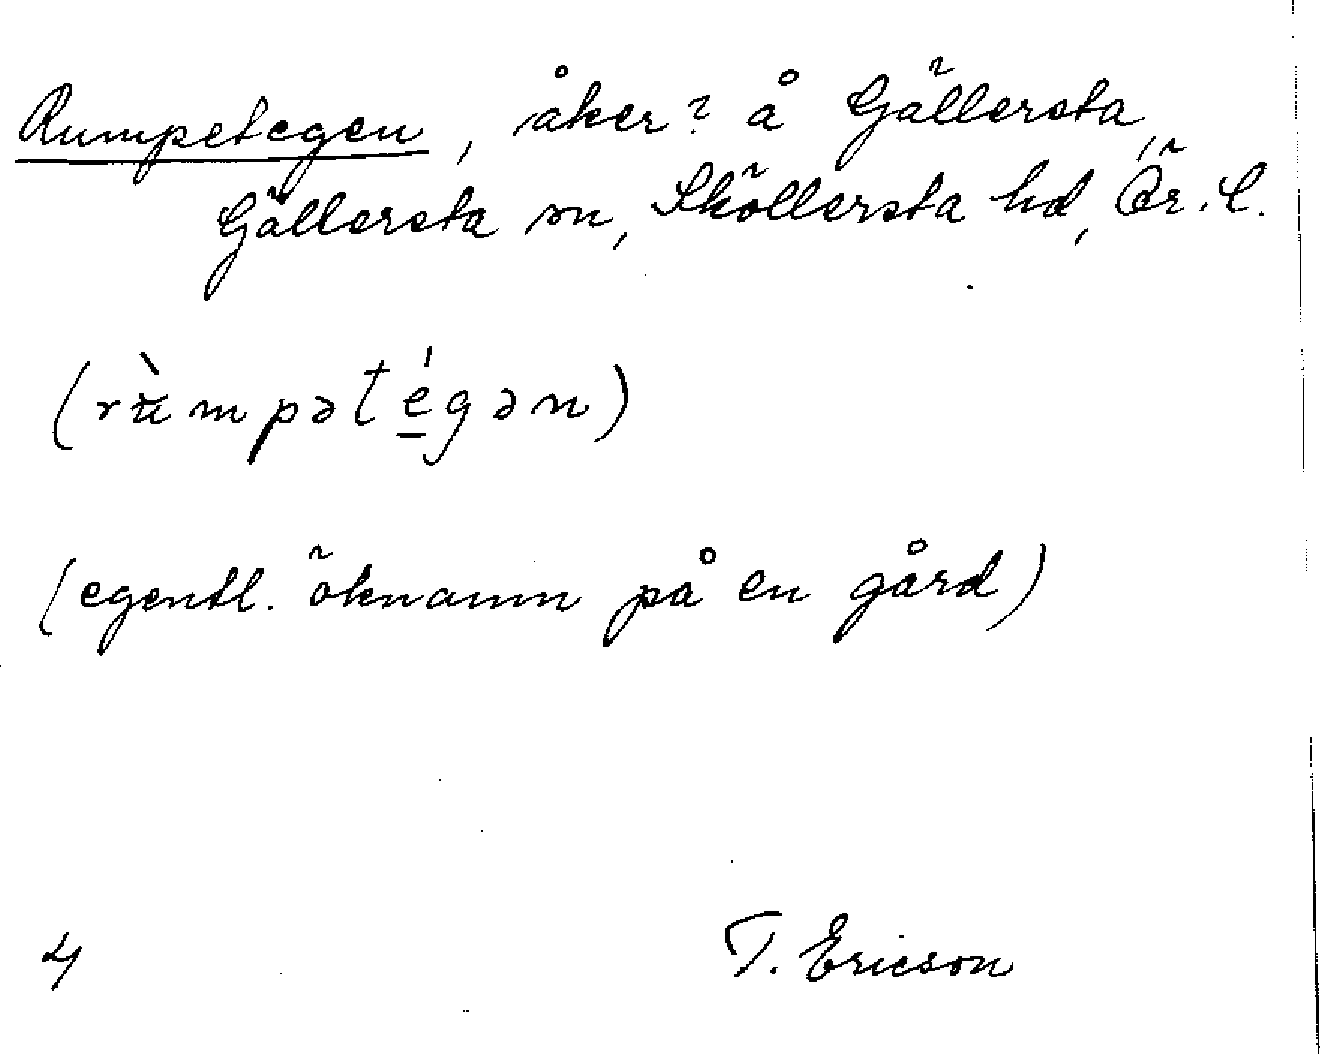 Rumpetegen, åker? å Gällersta,
Gällersta sn, Sköllersta hd, Ör. l.
(rùmpətégən)
(egentl. öknamn på en gård)
4 T. Ericson